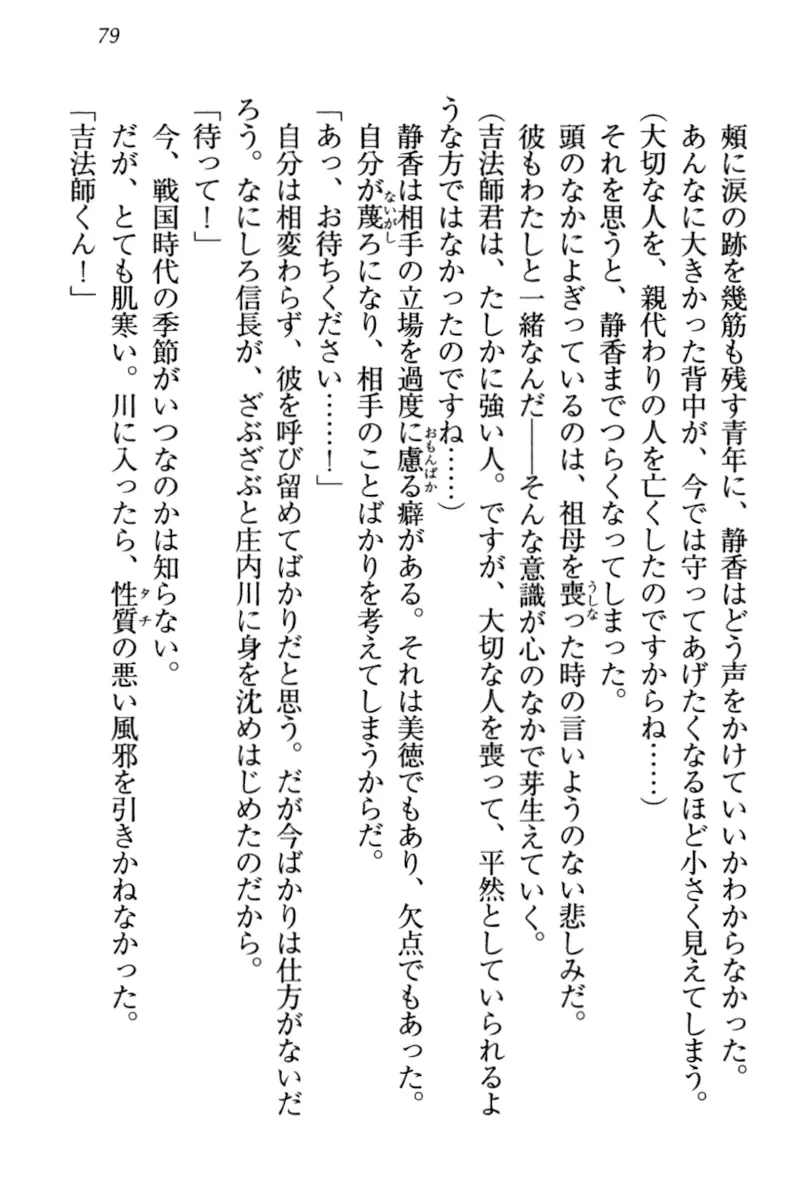 79
頰に涙の跡を幾筋も残す青年に、静香はどう声をかけていいかわからなかった。
あんなに大きかった背中が、今では守ってあげたくなるほど小さく見えてしまう。
(大切な人を、親代わりの人を亡くしたのですからね……)
それを思うと、静香までつらくなってしまった。
頭のなかによぎっているのは、祖母を喪った時の言いようのない悲しみだ。
うしな
彼もわたしと一緒なんだ――そんな意識が心のなかで芽生えていく。
(吉法師君は、たしかに強い人。ですが、大切な人を喪って、平然としていられるよ
うな方ではなかったのですね……)
静香は相手の立場を過度に慮る癖がある。それは美徳でもあり、欠点でもあった。
おもんぱか
自分が蔑ろになり、相手のことばかりを考えてしまうからだ。
ないがし
「あっ、お待ちください……!」
自分は相変わらず、彼を呼び留めてばかりだと思う。だが今ばかりは仕方がないだ
ろう。なにしろ信長が、ざぶざぶと庄内川に身を沈めはじめたのだから。
「待って!」
今、戦国時代の季節がいつなのかは知らない。
だが、とても肌寒い。川に入ったら、性質の悪い風邪を引きかねなかった。
タチ
「吉法師くん!」